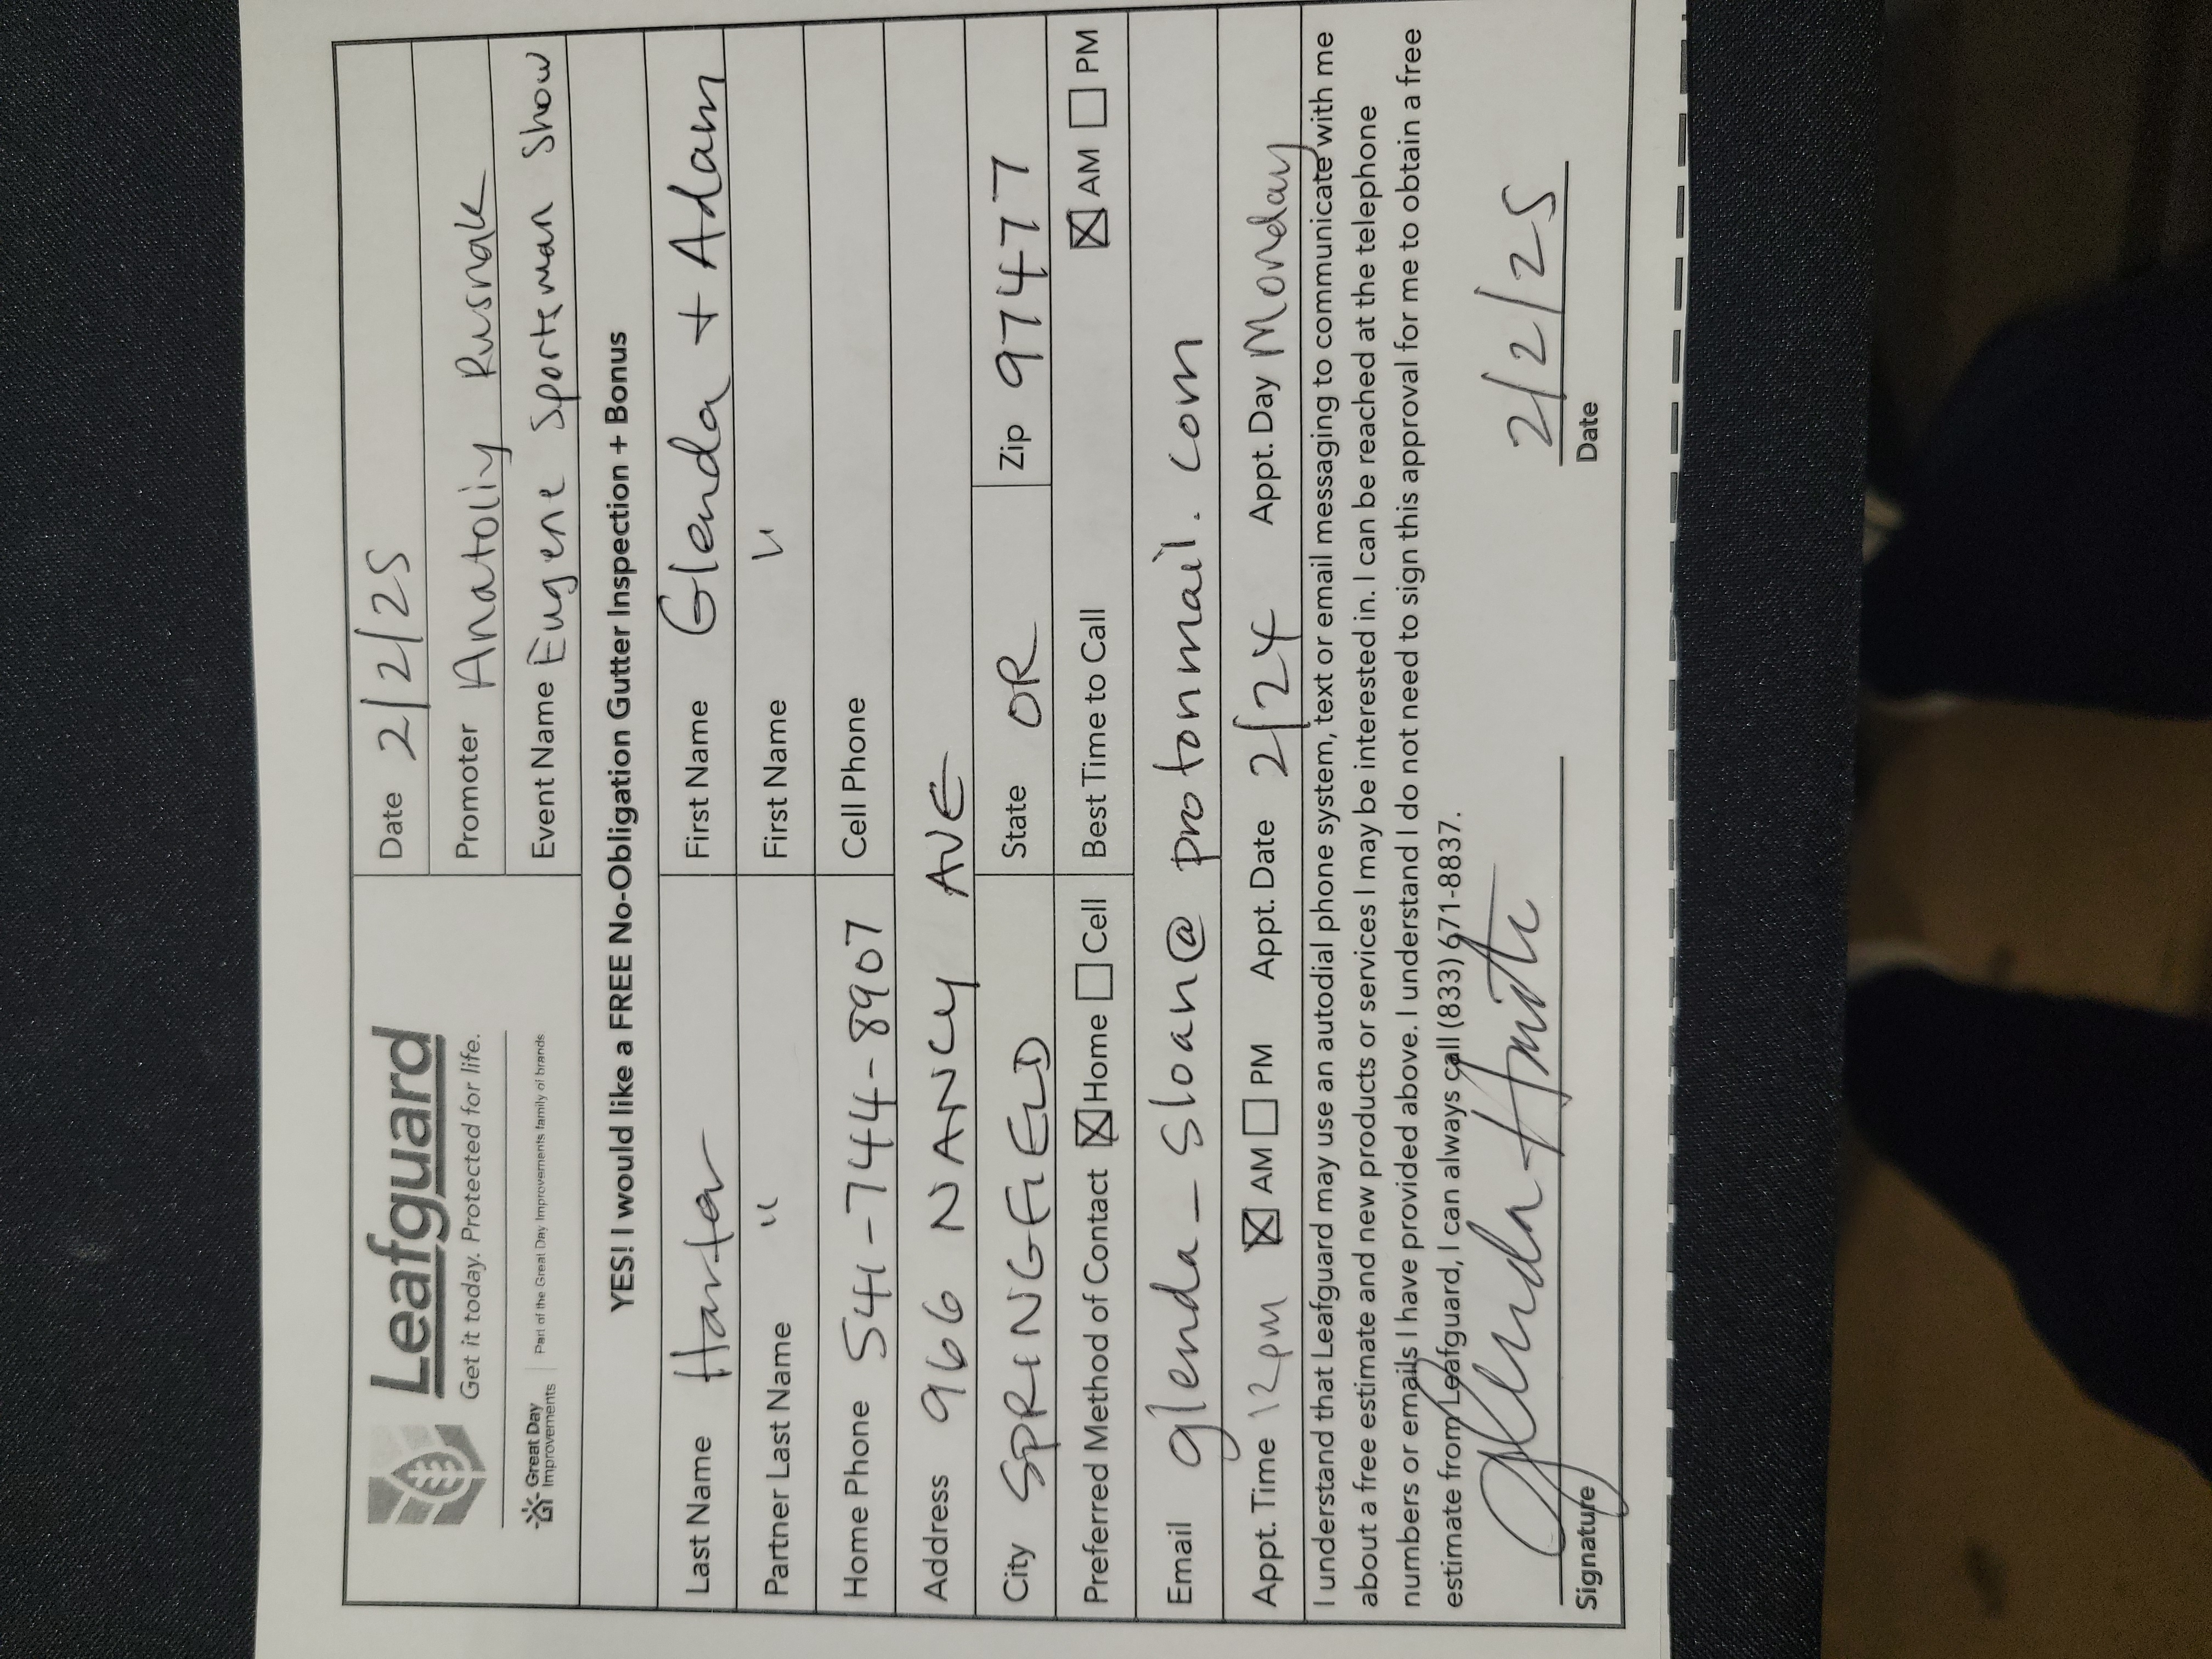 Leafguard
Get it today. Protected for life.
Great Day Improvements | Part of the Great Day Improvements family of brands
Date 2/2/25
Promoter Anatoliy Rusnak
Event Name Eugene Sportsman Show
YES! I would like a FREE No-Obligation Gutter Inspection + Bonus
Last Name Harter First Name Glenda + Adam
Partner Last Name " First Name "
Home Phone 541-744-8907 Cell Phone
Address 966 NANCY AVE
City SPRINGFIELD State OR Zip 97477
Preferred Method of Contact ☒ Home ☐ Cell Best Time to Call ☒ AM ☐ PM
Email glenda_sloan@protonmail.com
Appt. Time 12pm ☒ AM ☐ PM Appt. Date 2/24 Appt. Day Monday
I understand that Leafguard may use an autodial phone system, text or email messaging to communicate with me
about a free estimate and new products or services I may be interested in. I can be reached at the telephone
numbers or emails I have provided above. I understand I do not need to sign this approval for me to obtain a free
estimate from Leafguard, I can always call (833) 671-8837.
2/2/25
Signature Date